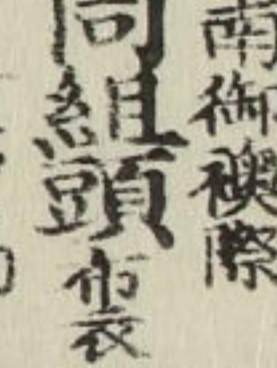 南御襖際
同組頭布衣